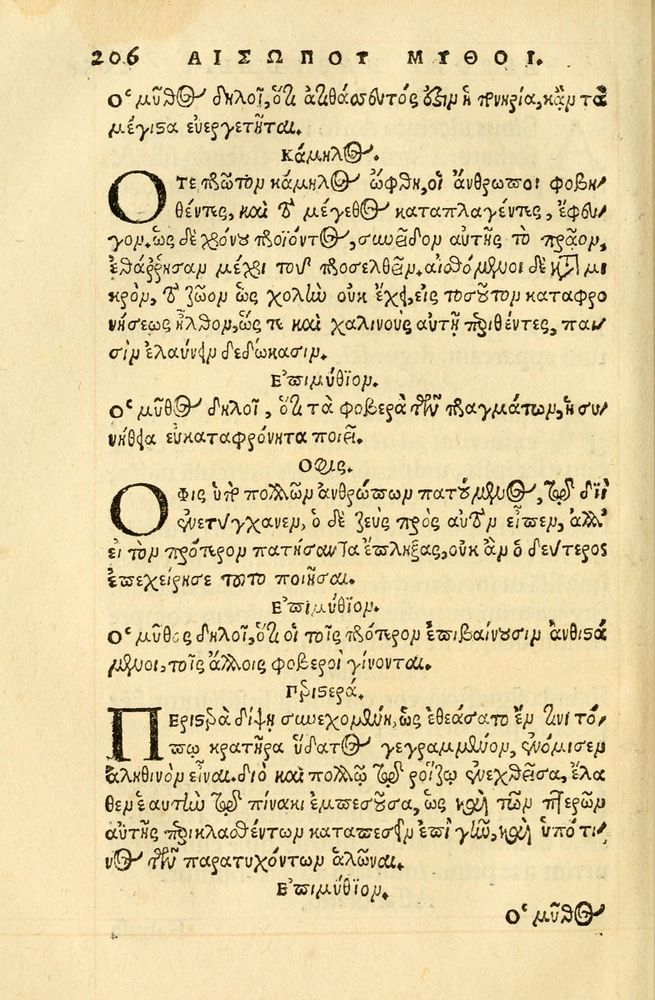 206 ΑΙΣΩΠΟΥ ΜΥΘΟΙ.
Ὁ μῦθος δηλοῖ, ὅτι ἀτιθάσσευτός ἐστιν ἡ πονηρία, κἂν τὰ
μέγιστα εὐεργετῆται.
Κάμηλος.
ΟΤΕ πρῶτον κάμηλος ὤφθη, οἱ ἄνθρωποι φοβη-
θέντες, καὶ τὸ μέγεθος καταπλαγέντες, ἔφευ-
γον. ὡς δὲ χρόνου προϊόντος, συνεῖδον αὐτῆς τὸ πρᾶον,
ἐθάῤῥησαν μέχρι τοῦ προσελθεῖν. αἰσθόμενοι δὲ κατὰ μι
κρὸν, τὸ ζῶον ὡς χολὴν οὐκ ἔχει, εἰς τοσοῦτον καταφρο
νήσεως ἦλθον, ὥς τε καὶ χαλινοὺς αὐτῇ περιθέντες, παι-
σὶν ἐλαύνειν δεδώκασιν.
Ἐπιμύθϊον.
Ὁ μῦθος δηλοῖ, ὅτι τὰ φοβερὰ τῶν πραγμάτων, ἡ συ-
νήθεια εὐκαταφρόνητα ποιεῖ.
Ὄφις.
ΟΦΙΣ ὑπὸ πολλῶν ἀνθρώπων πατούμενος, τῷ διῒ
ἐνετύγχανεν, ὁ δὲ ζεὺς πρὸς αὐτὸν εἶπεν, ἀλλ'
εἰ τὸν πρότερον πατήσαντα ἔπληξας, οὐκ ἂν ὁ δεύτερος
ἐπεχείρησε τοῦτο ποιῆσαι.
Ἐπιμύθϊον.
Ὁ μῦθος δηλοῖ, ὅτι οἱ τοῖς πρότερον ἐπιβαίνουσιν ἀνθιστά
μενοι, τοῖς ἄλλοις φοβεροὶ γίνονται.
Περιστερά.
ΠΕΡΙΣΤΕΡΑ δίψῃ συνεχομένη, ὡς ἐθεάσατο ἔν τινι τό-
πῳ κρατῆρα ὕδατος γεγραμμένον, ἐνόμισεν
ἀληθινὸν εἶναι. διὸ καὶ πολλῷ τῷ ῥοίζῳ ἐνεχθεῖσα, ἔλα
θεν ἑαυτὴν τῷ πίνακι ἐμπεσοῦσα, ὡς καὶ τῶν πτερῶν
αὐτῆς περικλασθέντων καταπεσεῖν ἐπὶ γῆν, καὶ ὑπό τι-
νος τῶν παρατυχόντων ἁλῶναι.
Ἐπιμύθϊον.
Ὁ μῦθος